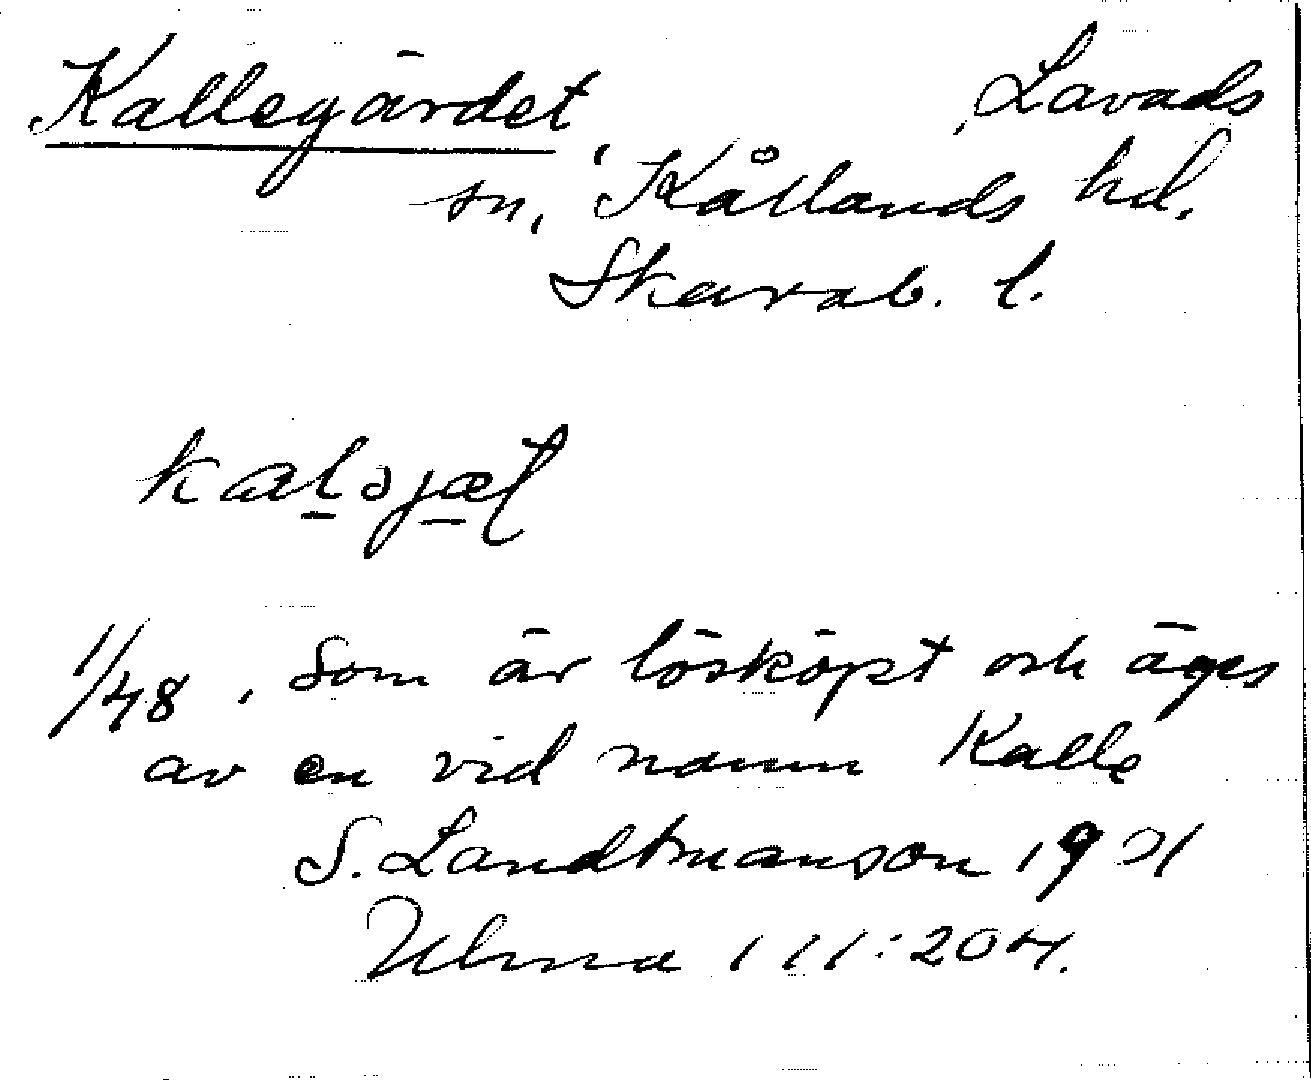 Kallegärdet, Lavads
sn, Kållands hd.
Skarab. l.
kaləjæt
1/48, som är lösköpt och äges
av en vid namn Kalle
S. Landtmanson 1901
Ulma 111:204.